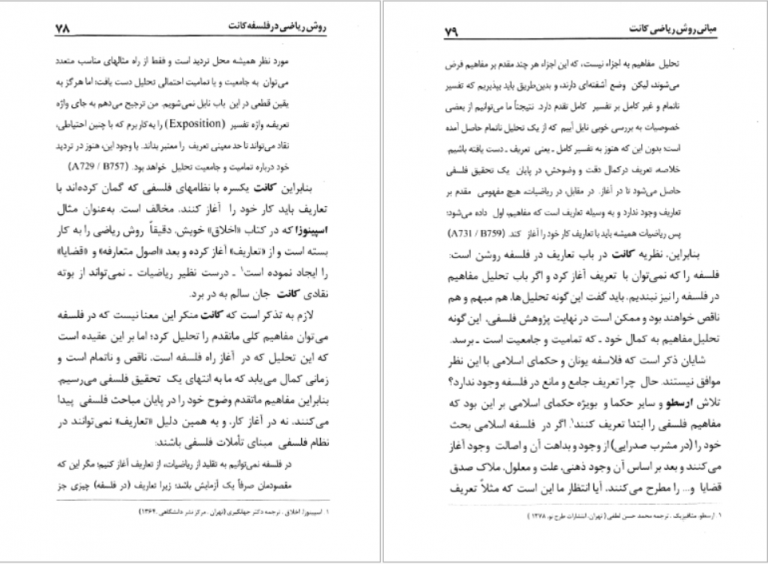 ۷۸ روش ریاضی در فلسفه کانت
مورد نظر همیشه محل تردید است و فقط از راه مثالهای مناسب متعدد
می‌توان به جامعیت و یا تمامیت احتمالی تحلیل دست یافت؛ اما هرگز به
یقین قطعی در این باب نایل نمی‌شویم. من ترجیح می‌دهم به جای واژه
تعریف، واژه تفسیر (Exposition) را به کار برم که با چنین احتیاطی،
نقاد می‌تواند تا حد معینی تعریف را معتبر بداند. با وجود این، هنوز در تردید
خود درباره تمامیت و جامعیت تحلیل خواهد بود. (A729 / B757)
بنابراین کانت یکسره با نظامهای فلسفی که گمان کرده‌اند با
تعاریف باید کار خود را آغاز کنند، مخالف است. به‌عنوان مثال
اسپینوزا که در کتاب «اخلاق» خویش، دقیقاً روش ریاضی را به کار
بسته است و از «تعاریف» آغاز کرده و بعد «اصول متعارفه» و «قضایا»
را ایجاد نموده است۱ ـ درست نظیر ریاضیات ـ نمی‌تواند از بوته
نقادی کانت جان سالم به در برد.
لازم به تذکر است که کانت منکر این معنا نیست که در فلسفه
می‌توان مفاهیم کلی ماتقدم را تحلیل کرد؛ اما بر این عقیده است
که این تحلیل که در آغاز راه فلسفه است، ناقص و ناتمام است و
زمانی کمال می‌یابد که ما به انتهای یک تحقیق فلسفی می‌رسیم.
بنابراین مفاهیم ماتقدم وضوح خود را در پایان مباحث فلسفی پیدا
می‌کنند، نه در آغاز کار، و به همین دلیل «تعاریف» نمی‌توانند در
نظام فلسفی مبنای تأملات فلسفی باشند:
در فلسفه نمی‌توانیم به تقلید از ریاضیات، از تعاریف آغاز کنیم؛ مگر این که
مقصودمان صرفاً یک آزمایش باشد؛ زیرا تعاریف (در فلسفه) چیزی جز
۱ اسپینوزا، اخلاق، ترجمه دکتر جهانگیری (تهران، مرکز نشر دانشگاهی، ۱۳۶۴)
مبانی روش ریاضی کانت ۷۹
تحلیل مفاهیم به اجزاء نیست، که این اجزاء هر چند مقدم بر مفاهیم فرض
می‌شوند، لیکن وضع آشفته‌ای دارند، و بدین‌طریق باید بپذیریم که تفسیر
ناتمام و غیر کامل بر تفسیر کامل تقدم دارد. نتیجتاً ما می‌توانیم از بعضی
خصوصیات به بررسی خوبی نایل آییم که از یک تحلیل ناتمام حاصل آمده
است؛ بدون این که هنوز به تفسیر کامل ـ یعنی تعریف ـ دست یافته باشیم.
خلاصه، تعریف در کمال دقت و وضوحش، در پایان یک تحقیق فلسفی
حاصل می‌شود تا در آغاز. در مقابل، در ریاضیات، هیچ مفهومی مقدم بر
تعریف وجود ندارد و به وسیله تعاریف است که مفاهیم، اول داده می‌شود؛
پس ریاضیات همیشه باید با تعریف کار خود را آغاز کند. (A731 / B759)
بنابراین، نظریه کانت در باب تعاریف در فلسفه روشن است:
فلسفه را که نمی‌توان با تعریف آغاز کرد و اگر باب تحلیل مفاهیم
در فلسفه را نیز نبندیم، باید گفت این گونه تحلیل‌ها، هم مبهم و هم
ناقص خواهند بود و ممکن است در نهایت پژوهش فلسفی، این گونه
تحلیل مفاهیم به کمال خود ـ که تمامیت و جامعیت است ـ برسد.
شایان ذکر است که فلاسفه یونان و حکمای اسلامی با این نظر
موافق نیستند. حال چرا تعریف جامع و مانع در فلسفه وجود ندارد؟
تلاش ارسطو و سایر حکما و بویژه حکمای اسلامی بر این بود که
مفاهیم فلسفی را ابتدا تعریف کنند۱. اگر در فلسفه اسلامی بحث
خود را (در مشرب صدرایی) از وجود و بداهت آن و اصالت وجود آغاز
می‌کنند و بعد بر اساس آن وجود ذهنی، علت و معلول، ملاک صدق
قضایا و... را مطرح می‌کنند. آیا انتظار ما این است که مثلاً تعریف
۱ ارسطو، متافیزیک، ترجمه محمد حسن لطفی (تهران، انتشارات طرح نو، ۱۳۷۸)